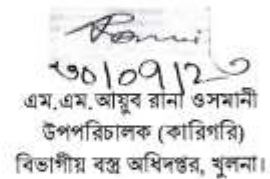 ৩০/০৭/২৩
এম.এম.আয়ুব রানা ওসমানী
উপপরিচালক (কারিগরি)
বিভাগীয় বস্ত্র অধিদপ্তর, খুলনা।